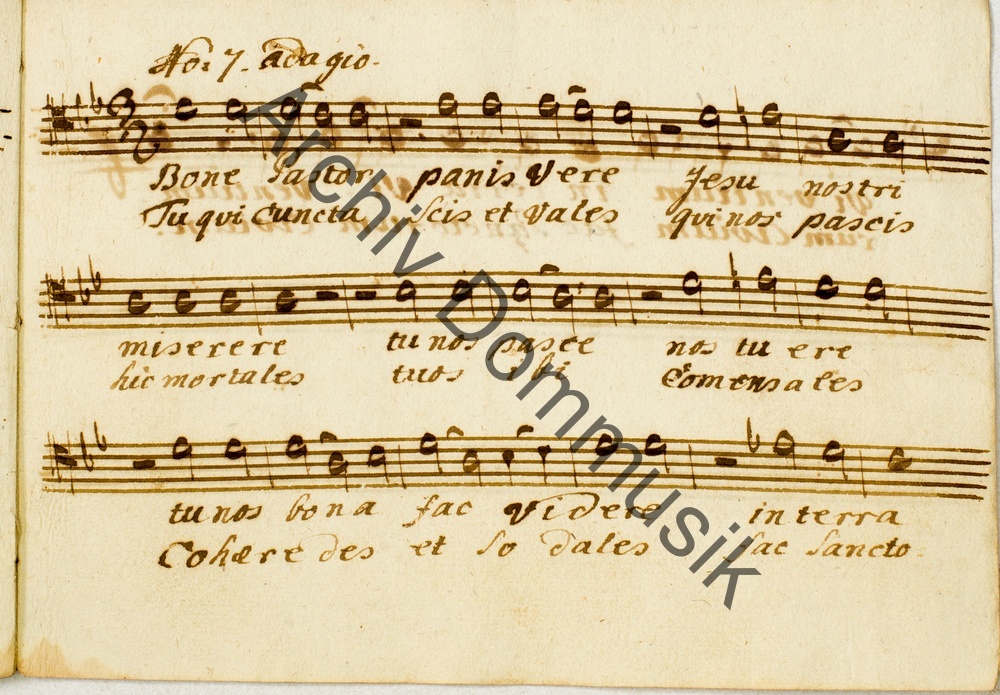 No: 7. adagio.
Bone Pastor panis Vere Jesu nostri
Tu qui Cuncta Scis et Vales qui nos pascis
miserere tu nos pasce nos tu ere
hic mortales tuos ibi Comensales
tu nos bona fac Videre in terra
Cohæredes et So dales fac Sancto
Archiv Dommusik